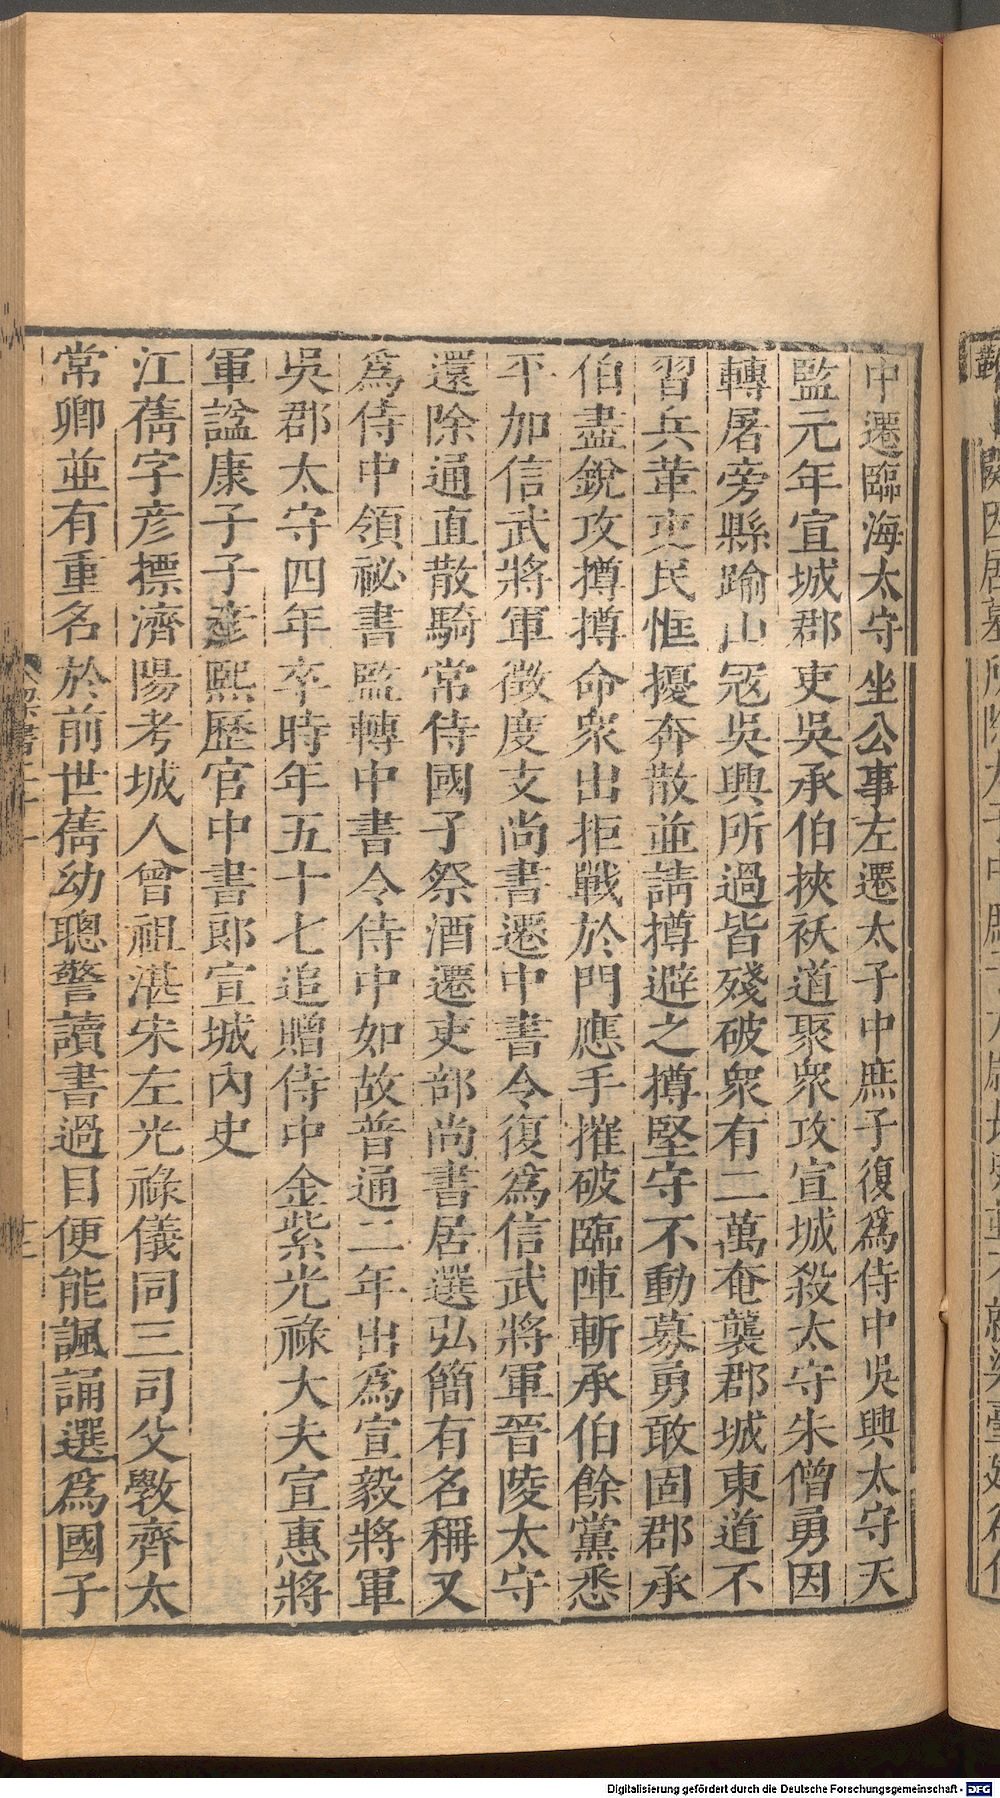 中遷臨海太守坐公事左遷太子中庶子復爲侍中吳興太守天
監元年宣城郡吏吳承伯挾祅道聚衆攻宣城殺太守朱僧勇因
轉屠旁縣踰山冦吳興所過皆殘破衆有二萬奄襲郡城東道不
習兵革吏民恇擾奔散並請撙避之撙堅守不動募勇敢固郡承
伯盡銳攻撙撙命衆出拒戰於門應手摧破臨陣斬承伯餘黨悉
平加信武將軍徵度支尚書遷中書令復爲信武將軍晉陵太守
還除通直散騎常侍國子祭酒遷吏部尚書居選弘簡有名稱又
爲侍中領祕書監轉中書令侍中如故普通二年出爲宣毅將軍
吳郡太守四年卒時年五十七追贈侍中金紫光祿大夫宣惠將
軍諡康子子彥熙歷官中書郎宣城內史
江蒨字彦標濟陽考城人曾祖湛宋左光祿儀同三司父斅齊太
常卿並有重名於前世蒨幼聰警讀書過目便能諷誦選爲國子
Digitalisierung gefördert durch die Deutsche Forschungsgemeinschaft - DFG